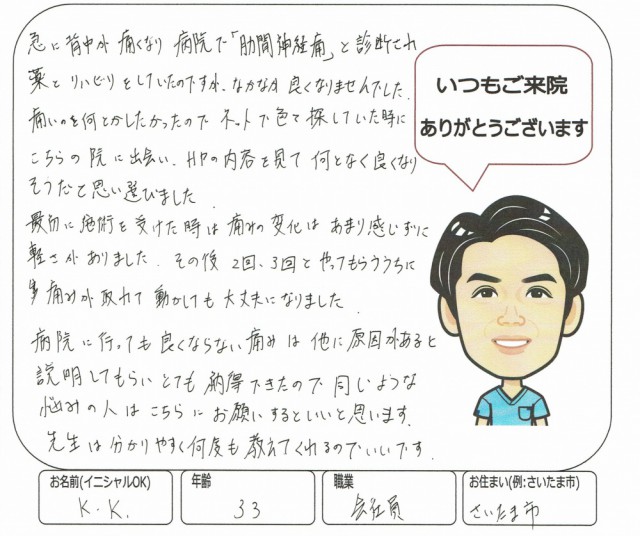 急に背中が痛くなり病院で「肋間神経痛」と診断され
薬とリハビリをしていたのですが、なかなか良くなりませんでした.
痛いのを何とかしたかったのでネットで色々探していた時に
こちらの院に出会い、HPの内容を見て何となく良くなり
そうだと思い選びました
最初に施術を受けた時は痛みの変化はあまり感じずに
軽さがありました. その後2回、3回とやってもらううちに
痛みが取れて動かしても大丈夫になりました.
病院に行っても良くならない痛みは他に原因があると
説明してもらいとても納得できたので同じような
悩みの人はこちらにお願いするといいと思います.
先生は分かりやすく何度も教えてくれるのでいいです.
いつもご来院
ありがとうございます
お名前(イニシャルOK)
K. K.
年齢
33
職業
会社員
お住まい(例:さいたま市)
さいたま市